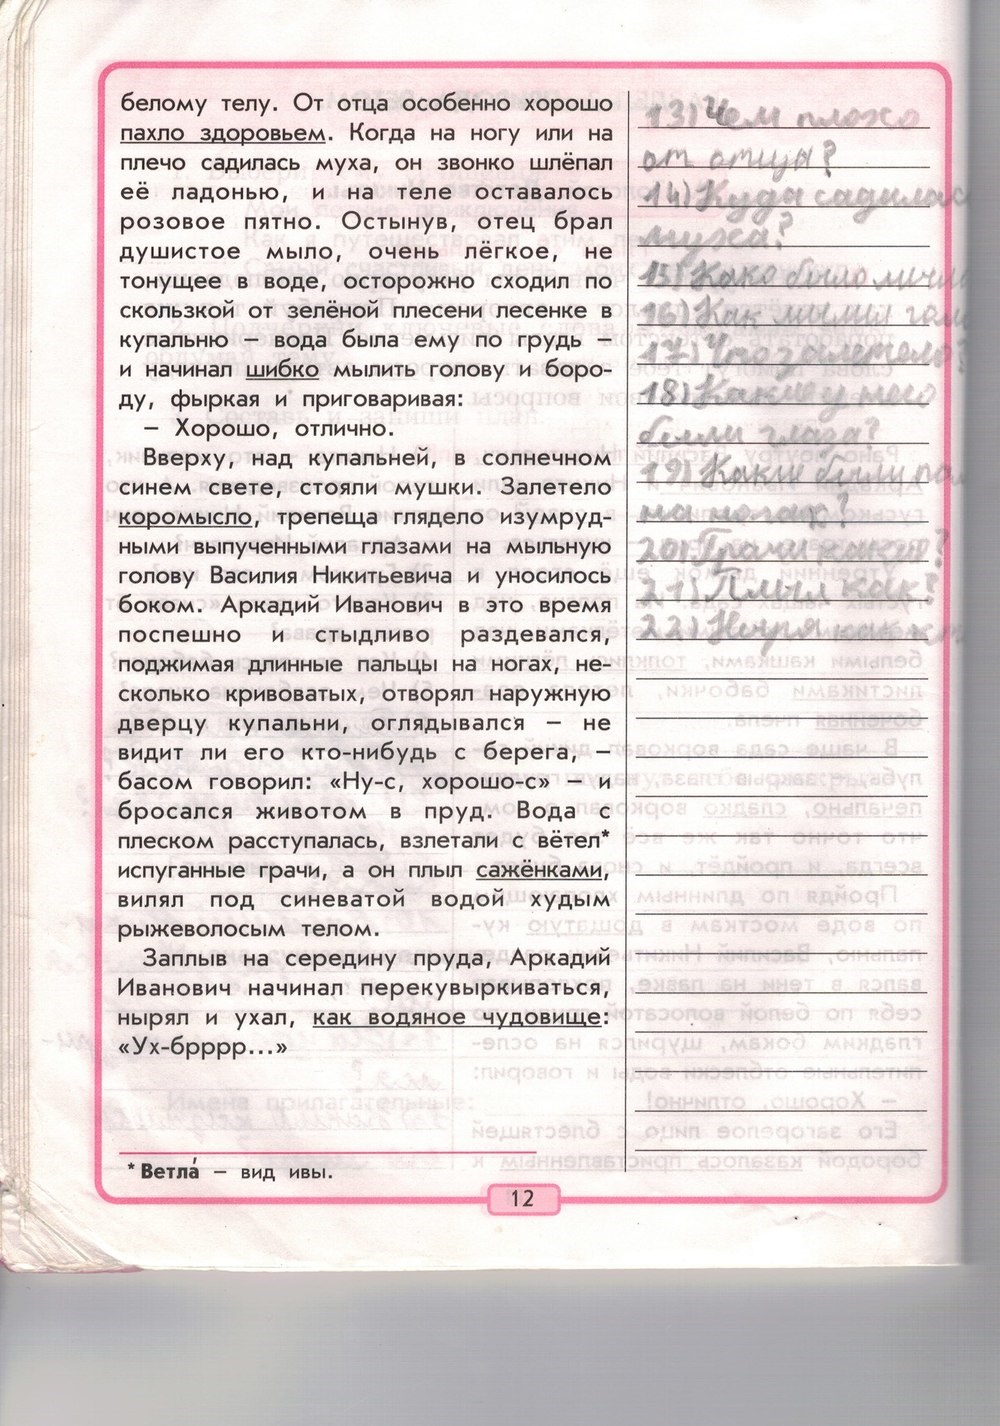 белому телу. От отца особенно хорошо
пахло здоровьем. Когда на ногу или на
плечо садилась муха, он звонко шлёпал
её ладонью, и на теле оставалось
розовое пятно. Остынув, отец брал
душистое мыло, очень лёгкое, не
тонущее в воде, осторожно сходил по
скользкой от зелёной плесени лесенке в
купальню – вода была ему по грудь –
и начинал шибко мылить голову и боро-
ду, фыркая и приговаривая:
– Хорошо, отлично.
Вверху, над купальней, в солнечном
синем свете, стояли мушки. Залетело
коромысло, трепеща глядело изумруд-
ными выпученными глазами на мыльную
голову Василия Никитьевича и уносилось
боком. Аркадий Иванович в это время
поспешно и стыдливо раздевался,
поджимая длинные пальцы на ногах, не-
сколько кривоватых, отворял наружную
дверцу купальни, оглядывался – не
видит ли его кто-нибудь с берега, –
басом говорил: «Ну-с, хорошо-с» – и
бросался животом в пруд. Вода с
плеском расступалась, взлетали с вётел*
испуганные грачи, а он плыл сажёнками,
вилял под синеватой водой худым
рыжеволосым телом.
Заплыв на середину пруда, Аркадий
Иванович начинал перекувыркиваться,
нырял и ухал, как водяное чудовище:
«Ух-брррр...»
* Ветла́ – вид ивы.
12
13) Чем плохо
от отцы?
14) Куда садилась
муха?
15) Како было
16) Как
17) Что залетело?
18) Какие у него
были глаза?
19) Какие были
на ногах?
20) Грачи какие?
21) Плыл как?
22) как